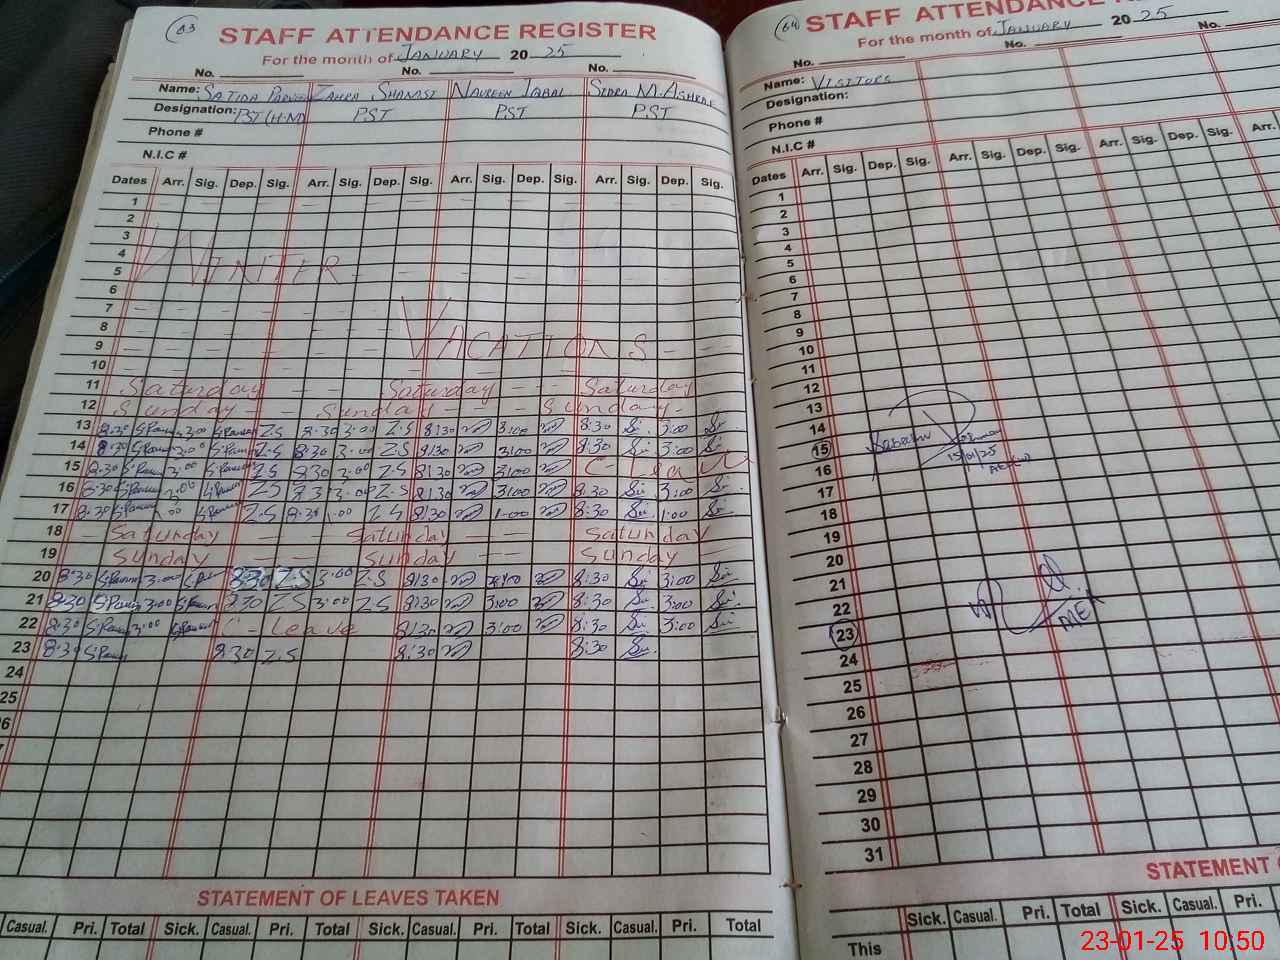 63
STAFF ATTENDANCE REGISTER
For the month of JANUARY 20 25
No. No. No.
Name: SAJIDA PARVEEN ZAHRA SHAMASI NAUREEN IQBAL SIDRA M. ASHRAF
Designation: PST (H.M) PST PST PST
Phone #
N.I.C #
Dates Arr. Sig. Dep. Sig. Arr. Sig. Dep. Sig. Arr. Sig. Dep. Sig. Arr. Sig. Dep. Sig.
1
2
3
4 WINTER
5
6
7
8
9 VACATIONS
10
11 Saturday Saturday Saturday
12 Sunday Sunday Sunday
13 8:30 3:00 Z.S 8:30 3:00 Z.S 8:30 3:00 8:30 3:00
14 8:30 3:00 Z.S 8:30 3:00 Z.S 8:30 3:00 8:30 3:00
15 8:30 3:00 Z.S 8:30 3:00 Z.S 8:30 3:00 C-Leave
16 8:30 3:00 Z.S 8:30 3:00 Z.S 8:30 3:00 8:30 3:00
17 8:30 1:00 Z.S 8:30 1:00 Z.S 8:30 1:00 8:30 1:00
18 Saturday Saturday Saturday
19 Sunday Sunday Sunday
20 8:30 3:00 8:30 Z.S 3:00 Z.S 8:30 3:00 8:30 3:00
21 8:30 3:00 8:30 Z.S 3:00 Z.S 8:30 3:00 8:30 3:00
22 8:30 3:00 C-Leave 8:30 3:00 8:30 3:00
23 8:30 8:30 Z.S 8:30 8:30
24
25
STATEMENT OF LEAVES TAKEN
Casual. Pri. Total Sick. Casual. Pri. Total Sick. Casual. Pri. Total Sick. Casual. Pri. Total
64
STAFF ATTENDANCE
For the month of JANUARY 20 25
No. No. No.
Name: VISITORS
Designation:
Phone #
N.I.C #
Dates Arr. Sig. Dep. Sig. Arr. Sig. Dep. Sig. Arr. Sig. Dep. Sig. Arr.
1
2
3
4
5
6
7
8
9
10
11
12
13
14
15 15/01/25
16
17
18
19
20
21
22
23 MEA
24
25
26
27
28
29
30
31
STATEMENT
Sick. Casual. Pri. Total Sick. Casual. Pri.
This
23-01-25 10:50